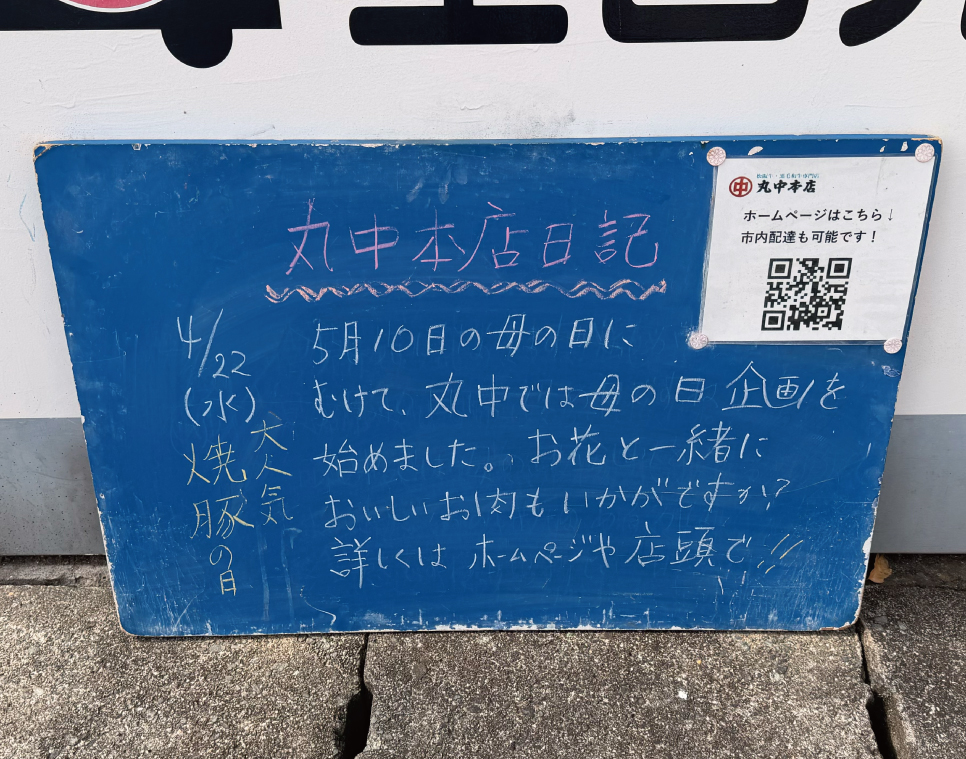 丸中本店日記
4/22
(水)
大人気
焼豚の日
5月10日の母の日に
むけて、丸中では母の日企画を
始めました。お花と一緒に
おいしいお肉もいかがですか?
詳しくは ホームページや店頭で!!
丸中本店
ホームページはこちら↓
市内配達も可能です!